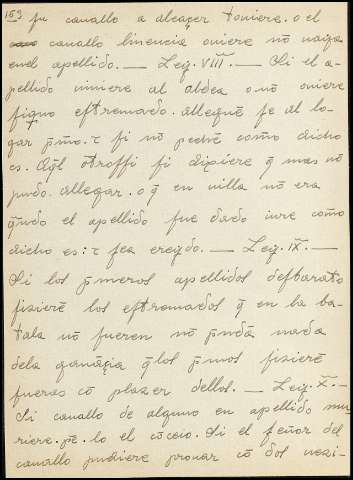 163 ſu cauallo a alcançer touiere. o el
cauallo linencia ouiere nō uaya
en el apellido. — Ley. VIII. — Si el a-
pellido uiniere al aldea o nō ouiere
ſigno eſtremado. allegue ſe al lo-
gar p̄mo. τ ſi nō peche como dicho
es. Aq̄l otroſſi ſi dixiere q̄ mas nō
pudo. allegar. o q̄ en uilla nō era
q̄ndo el apellido fue dado iure como
dicho es: τ ſea creydo. — Ley. IX. —
Si los p̄meros apellidos deſbarato
fizierē los eſtremados q̄ en la ba-
tala nō fueren nō p̄ndā nada
dela ganācia q̄ los p̄mos fizierē
fueras cō plazer dellos. — Ley. X. —
Si cauallo de alguno en apellido mu
riere. pe. lo el cōceio. Si el ſeñor del
cauallo pudiere prouar cō dos uezi-